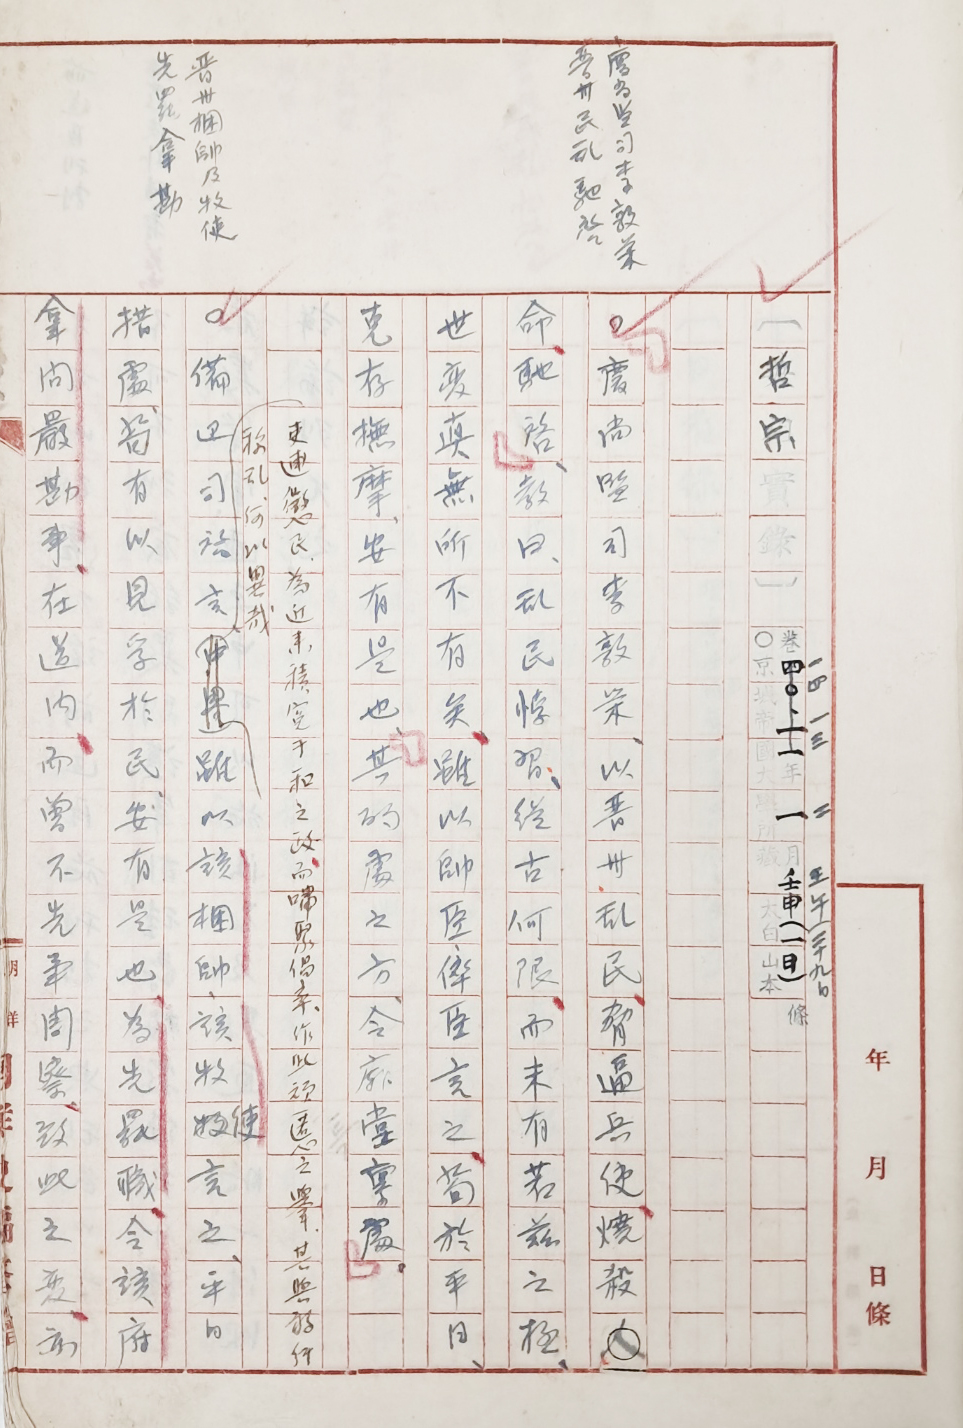 慶尚監司李敦榮
晋州民乱馳啓
晋州梱帥及牧使
先罷拿勘
(哲宗實錄)
一四 一三 二 壬午(二十九日)
卷四〇、一二年一月壬申(一日)條
〇京城帝國大學所藏太白山本
〇慶尚監司李敦榮、以晋州乱民脅逼兵使燒殺
命馳啓、敎曰、乱民悖習、從古何限、而未有若茲之極、
世変眞無所不有矣、雖以帥臣倅臣言之、苟於平日、
克存撫摩、安有是也、其酌處之方、令廟堂稟處、
吏逋徵民、為近来積寃干和之政、而嘯聚倡率、作此頑慝之擧、其與
称乱、何以異哉
〇備辺司啓言 雖以該梱帥、該牧使言之、平日
措處、苟有以見孚於民、安有是也、為先罷職、令該府
拿問嚴勘、事在道内、而曾不先事周察、致此之変、
年 月 日條